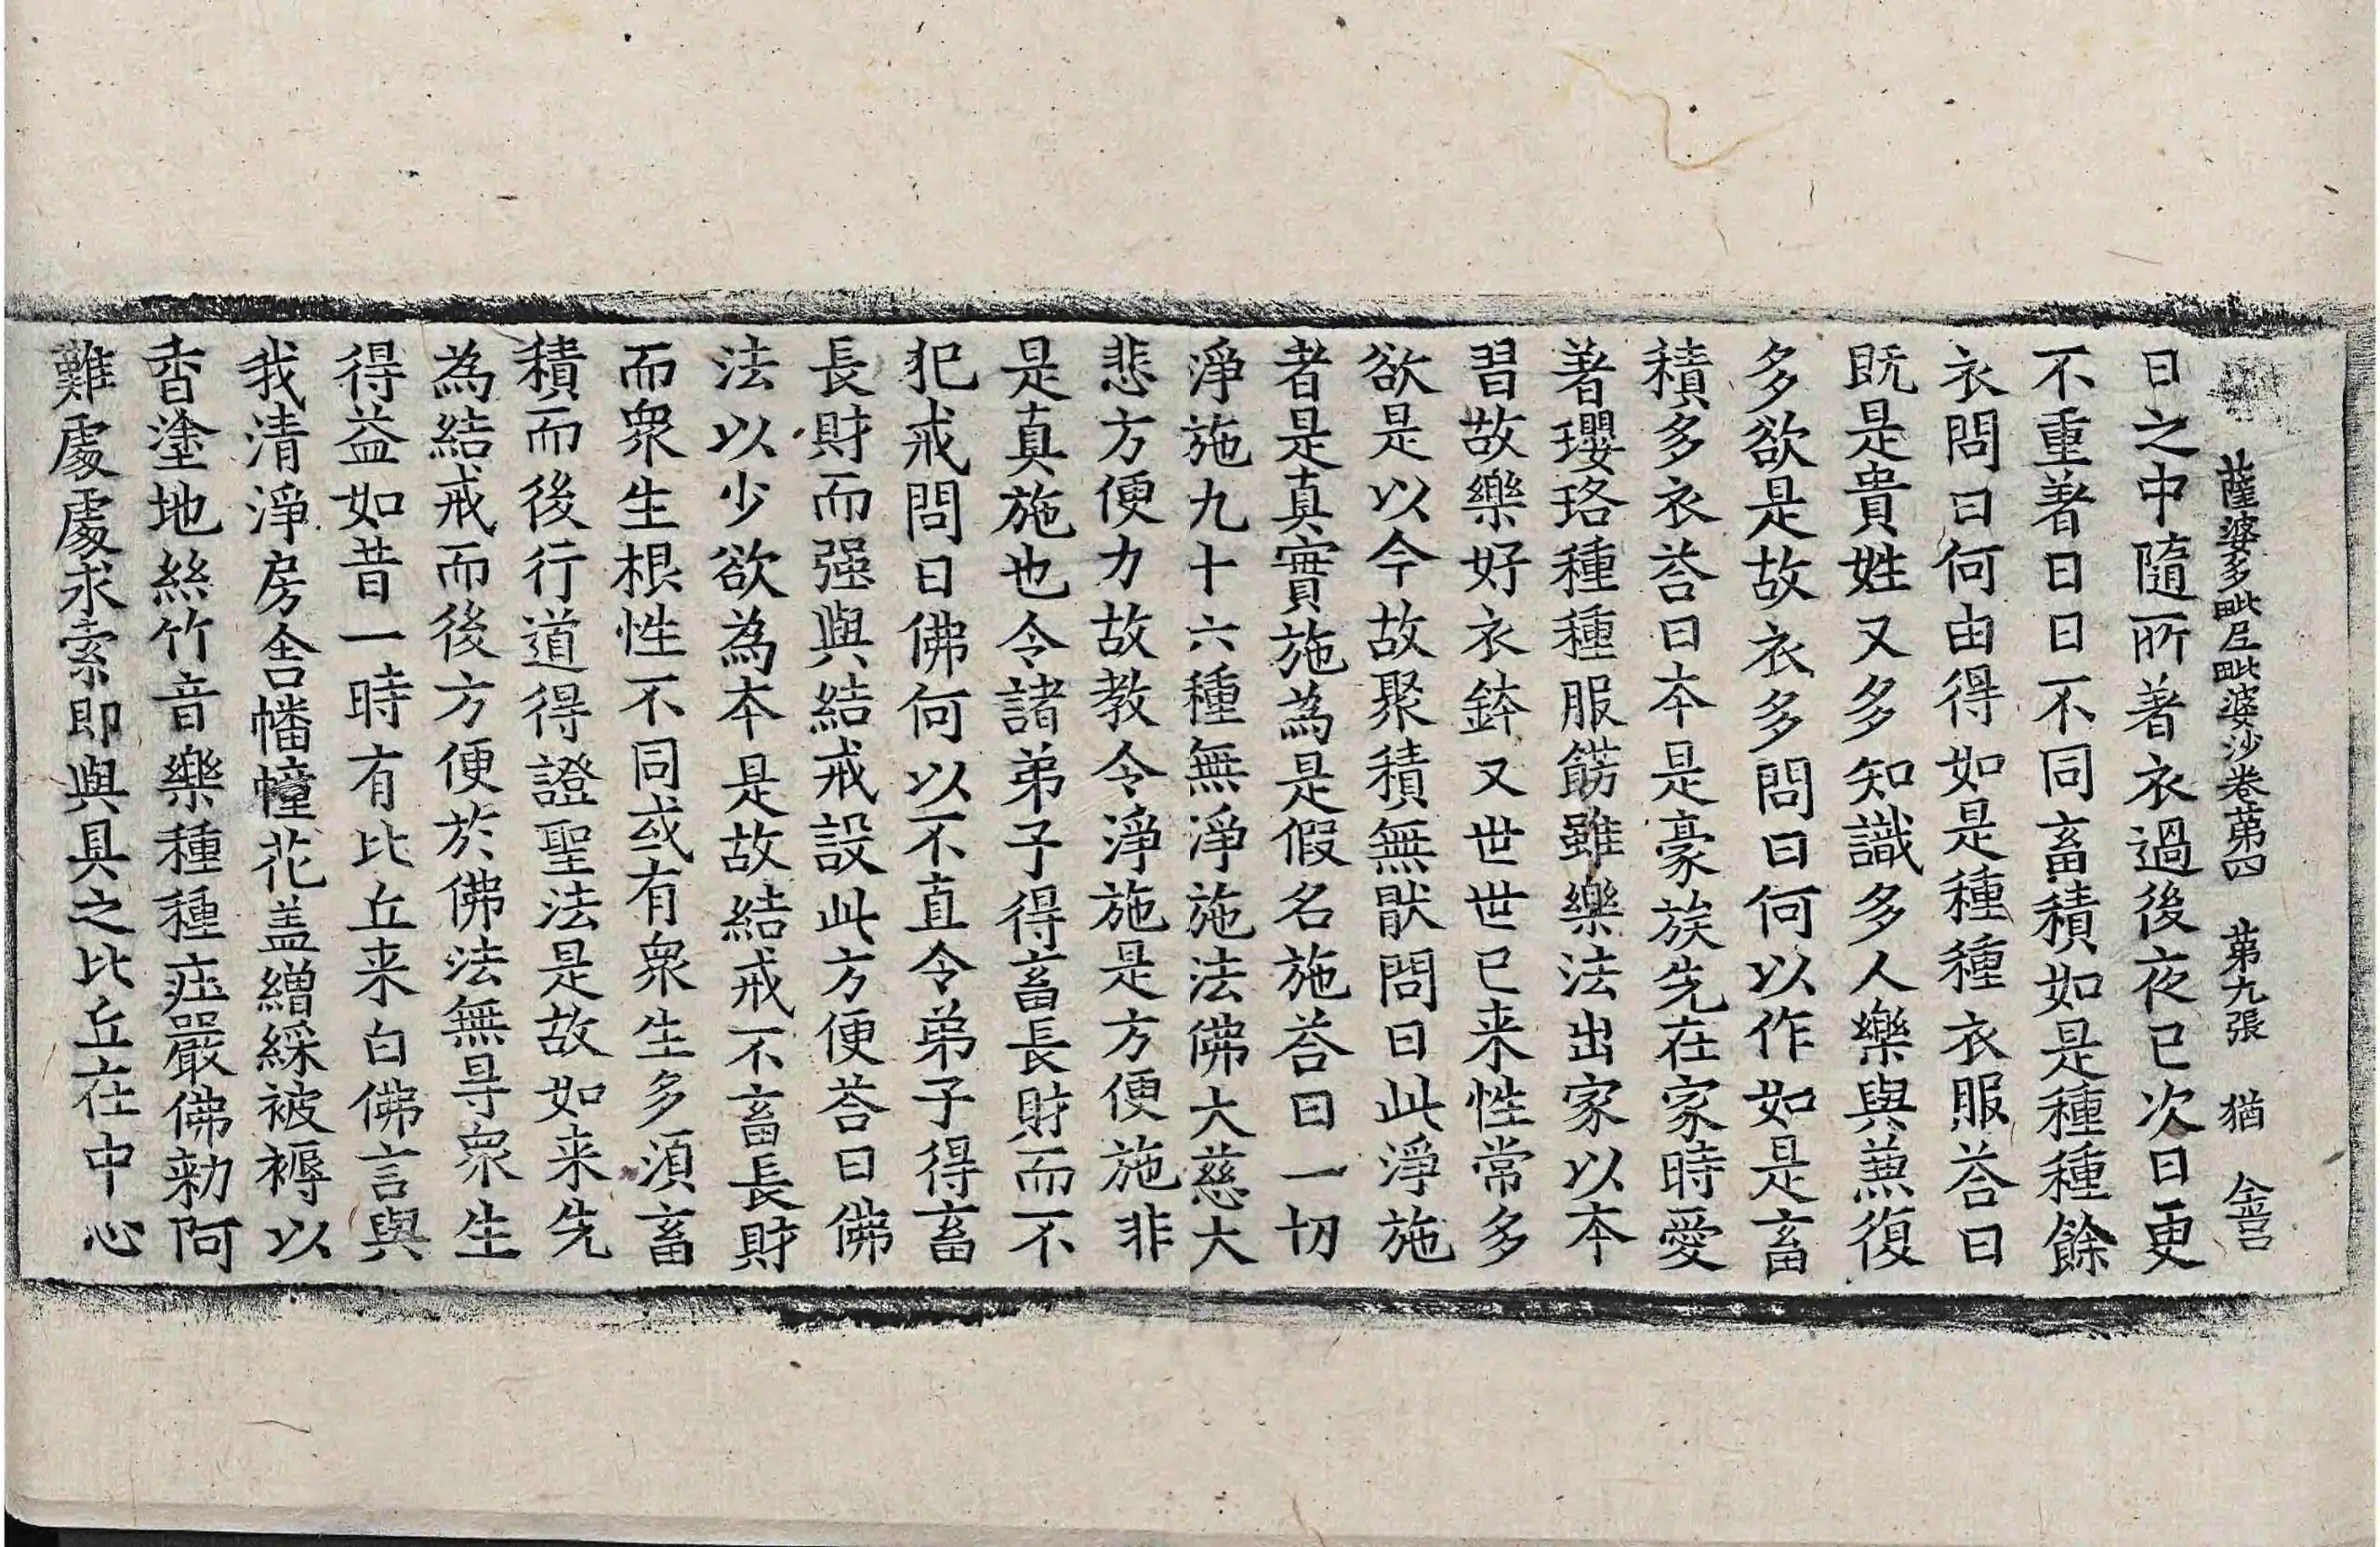 薩婆多毗尼毗婆沙卷苐四　苐九張　猶　金言
日之中隨所著衣過後夜已次日更
不重著日日不同畜積如是種種餘
衣問曰何由得如是種種衣服荅曰
既是貴姓又多知識多人樂與蕪復
多欲是故衣多問曰何以作如是畜
積多衣荅曰本是豪族先在家時愛
著瓔珞種種服餝雖樂法出家以本
習故樂好衣鉢又世世已来性常多
欲是以今故聚積無猒問曰此淨施
者是真實施為是假名施荅曰一切
淨施九十六種無淨施法佛大慈大
悲方便力故教令淨施是方便施非
是真施也令諸弟子得畜長財而不
犯戒問曰佛何以不直令弟子得畜
長財而强與結戒設此方便荅曰佛
法以少欲為本是故結戒不畜長財
而衆生根性不同或有衆生多湏畜
積而後行道得證聖法是故如来先
為結戒而後方便於佛法無㝵衆生
得益如昔一時有比丘来白佛言與
我清淨房舎幡幢花盖繒綵被褥以
香塗地絲竹音樂種種莊嚴佛勑阿
難處處求索即與具之比丘在中心